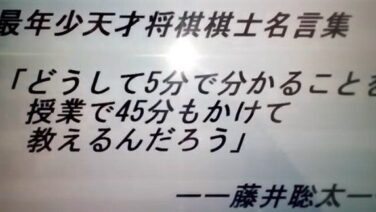 最年少天才将棋棋士名言集
「どうして5分で分かることを
授業で45分もかけて
教えるんだろう」
ーー藤井聡太ー